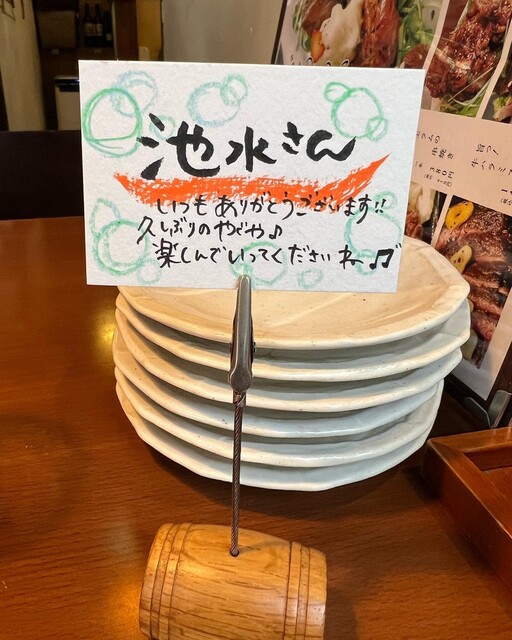 池水さん
いつもありがとうございます!!
久しぶりのやぐや♪
楽しんでいってくださいね♫